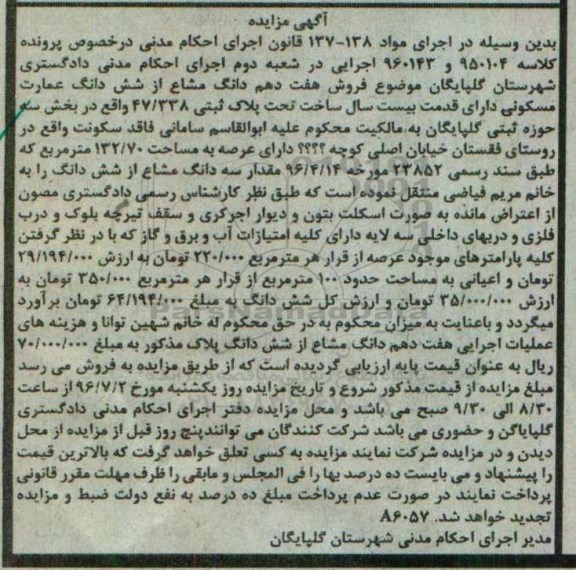 آگهی مزایده
بدین وسیله در اجرای مواد ۱۳۸-۱۳۷ قانون اجرای احکام مدنی درخصوص پرونده
کلاسه ۹۵۰۱۰۴ و ۹۶۰۱۴۳ اجرایی در شعبه دوم اجرای احکام مدنی دادگستری
شهرستان گلپایگان موضوع فروش هفت دهم دانگ مشاع از شش دانگ عمارت
مسکونی دارای قدمت بیست سال ساخت تحت پلاک ثبتی ۴۷/۳۳۸ واقع در بخش سه
حوزه ثبتی گلپایگان به مالکیت محکوم علیه ابوالقاسم سامانی فاقد سکونت واقع در
روستای فقستان خیابان اصلی کوچه ؟؟؟؟ دارای عرصه به مساحت ۱۳۲/۷۰ مترمربع که
طبق سند رسمی ۲۳۸۵۲ مورخه ۹۶/۴/۱۴ مقدار سه دانگ مشاع از شش دانگ را به
خانم مریم فیاضی منتقل نموده است که طبق نظر کارشناس رسمی دادگستری مصون
از اعتراض مانده به صورت اسکلت بتون و دیوار اجرگری و سقف تیرچه بلوک و درب
فلزی و دربهای داخلی سه لایه دارای کلیه امتیازات آب و برق و گاز که با در نظر گرفتن
کلیه پارامترهای موجود عرصه از قرار هر مترمربع ۲۲۰/۰۰۰ تومان به ارزش ۲۹/۱۹۴/۰۰۰
تومان و اعیانی به مساحت حدود ۱۰۰ مترمربع از قرار هر مترمربع ۳۵۰/۰۰۰ تومان به
ارزش ۳۵/۰۰۰/۰۰۰ تومان و ارزش کل شش دانگ به مبلغ ۶۴/۱۹۴/۰۰۰ تومان برآورد
میگردد و باعنایت به میزان محکوم به در حق محکوم له خانم شهین توانا و هزینه های
عملیات اجرایی هفت دهم دانگ مشاع از شش دانگ پلاک مذکور به مبلغ ۷۰/۰۰۰/۰۰۰
ریال به عنوان قیمت پایه ارزیابی گردیده است که از طریق مزایده به فروش می رسد
مبلغ مزایده از قیمت مذکور شروع و تاریخ مزایده روز یکشنبه مورخ ۹۶/۷/۲ از ساعت
۸/۳۰ الی ۹/۳۰ صبح می باشد و محل مزایده دفتر اجرای احکام مدنی دادگستری
گلپایاگن و حضوری می باشد شرکت کنندگان می توانندپنج روز قبل از مزایده از محل
دیدن و در مزایده شرکت نمایند مزایده به کسی تعلق خواهد گرفت که بالاترین قیمت
را پیشنهاد و می بایست ده درصد بها را فی المجلس و مابقی را ظرف مهلت مقرر قانونی
پرداخت نمایند در صورت عدم پرداخت مبلغ ده درصد به نفع دولت ضبط و مزایده
تجدید خواهد شد. ۸۶۰۵۷
مدیر اجرای احکام مدنی شهرستان گلپایگان